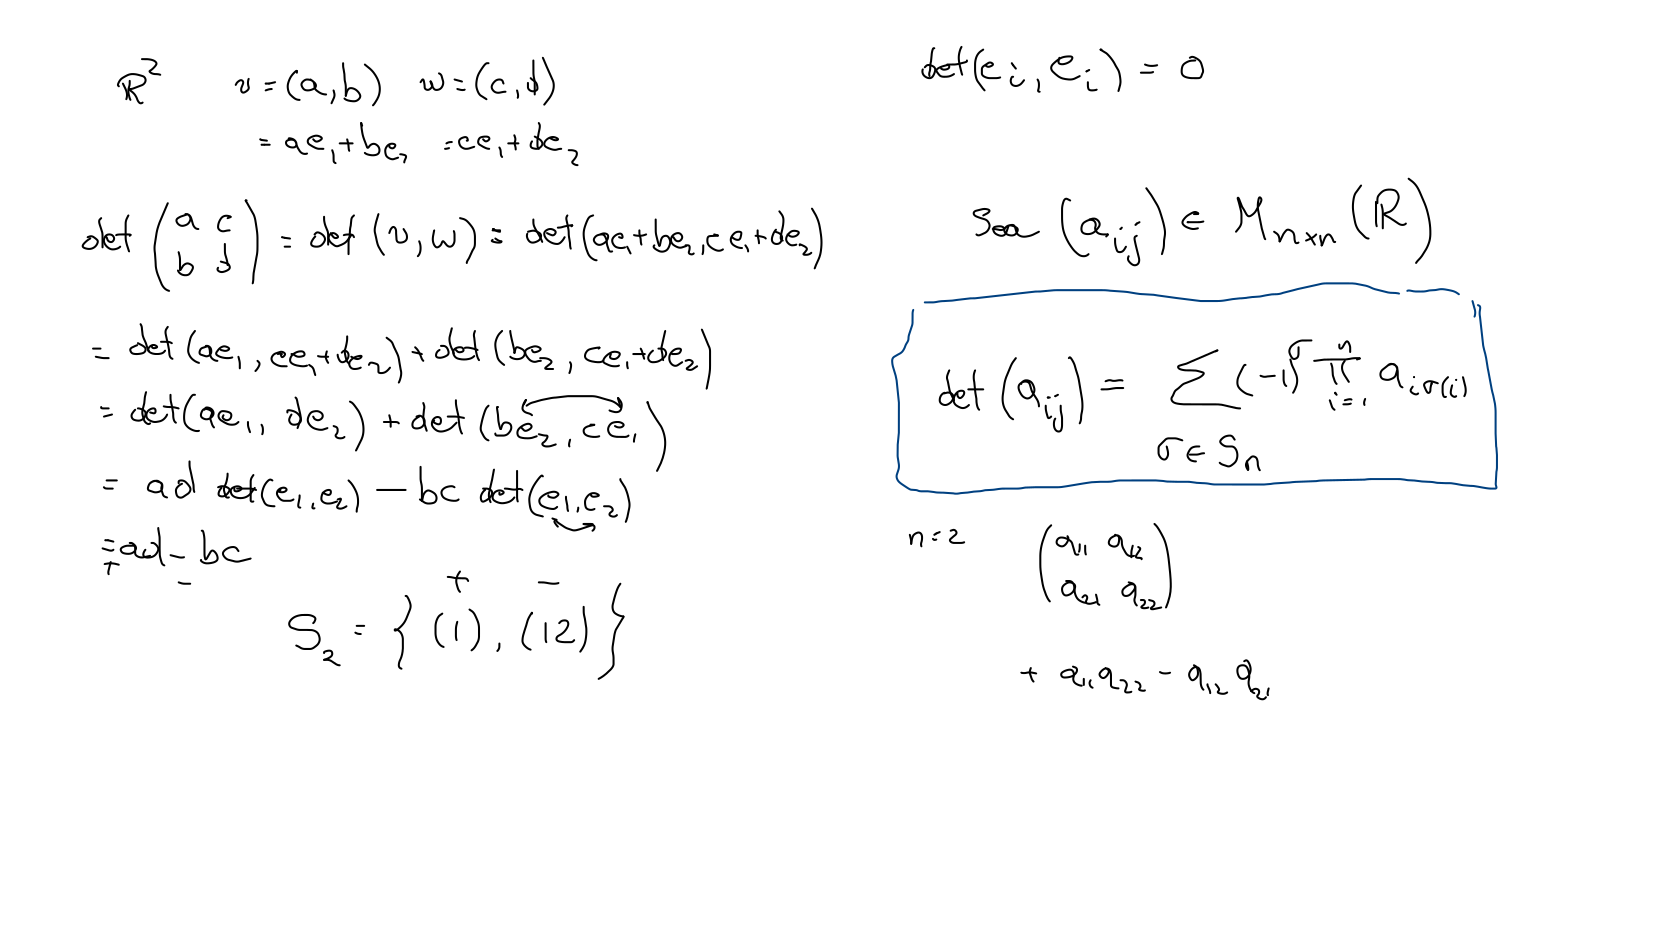 ℝ² v = (a,b) w = (c,d)
= ae₁+be₂ =ce₁+de₂
det (a c
b d) = det (v,w) = det(ae₁+be₂,ce₁+de₂)
= det(ae₁, ce₁+de₂) + det(be₂, ce₁+de₂)
= det(ae₁, de₂) + det(be₂, ce₁)
= ad det(e₁,e₂) − bc det(e₁,e₂)
= ad − bc
+ −
+ −
S₂ = {(1), (12)}
det(eᵢ, eᵢ) = 0
Sea (aᵢⱼ) ∈ Mₙₓₙ(ℝ)
det (aᵢⱼ) = ∑ (−1)^σ ∏ⁿ a_{iσ(i)}
i=1
σ ∈ Sₙ
n=2 (a₁₁ a₁₂
a₂₁ a₂₂)
+ a₁₁a₂₂ − a₁₂ a₂₁